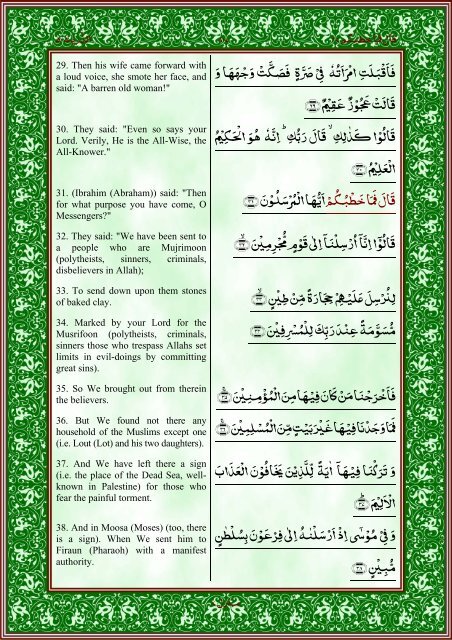 29. Then his wife came forward with
a loud voice, she smote her face, and
said: "A barren old woman!"
فَاَقْبَلَتِ امْرَاَتُهٗ فِیْ صَرَّةٍ فَصَكَّتْ وَجْهَهَا وَ
قَالَتْ عَجُوْزٌ عَقِیْمٌ ۝۲۹
30. They said: "Even so says your
Lord. Verily, He is the All-Wise, the
All-Knower."
قَالُوْا كَذٰلِكِ ۙ قَالَ رَبُّكِ ؕ اِنَّهٗ هُوَ الْحَكِیْمُ
الْعَلِیْمُ ۝۳۰
31. (Ibrahim (Abraham)) said: "Then
for what purpose you have come, O
Messengers?"
قَالَ فَمَا خَطْبُكُمْ اَیُّهَا الْمُرْسَلُوْنَ ۝۳۱
32. They said: "We have been sent to
a people who are Mujrimoon
(polytheists, sinners, criminals,
disbelievers in Allah);
قَالُوْۤا اِنَّاۤ اُرْسِلْنَاۤ اِلٰی قَوْمٍ مُّجْرِمِیْنَ ۝۳۲
33. To send down upon them stones
of baked clay.
لِنُرْسِلَ عَلَیْهِمْ حِجَارَةً مِّنْ طِیْنٍ ۝۳۳
34. Marked by your Lord for the
Musrifoon (polytheists, criminals,
sinners those who trespass Allahs set
limits in evil-doings by committing
great sins).
مُّسَوَّمَةً عِنْدَ رَبِّكَ لِلْمُسْرِفِیْنَ ۝۳۴
35. So We brought out from therein
the believers.
فَاَخْرَجْنَا مَنْ كَانَ فِیْهَا مِنَ الْمُؤْمِنِیْنَ ۝۳۵
36. But We found not there any
household of the Muslims except one
(i.e. Lout (Lot) and his two daughters).
فَمَا وَجَدْنَا فِیْهَا غَیْرَ بَیْتٍ مِّنَ الْمُسْلِمِیْنَ ۝۳۶
37. And We have left there a sign
(i.e. the place of the Dead Sea, well-
known in Palestine) for those who
fear the painful torment.
وَ تَرَكْنَا فِیْهَاۤ اٰیَةً لِّلَّذِیْنَ یَخَافُوْنَ الْعَذَابَ
الْاَلِیْمَ ۝۳۷
38. And in Moosa (Moses) (too, there
is a sign). When We sent him to
Firaun (Pharaoh) with a manifest
authority.
وَ فِیْ مُوْسٰۤی اِذْ اَرْسَلْنٰهُ اِلٰی فِرْعَوْنَ بِسُلْطٰنٍ
مُّبِیْنٍ ۝۳۸